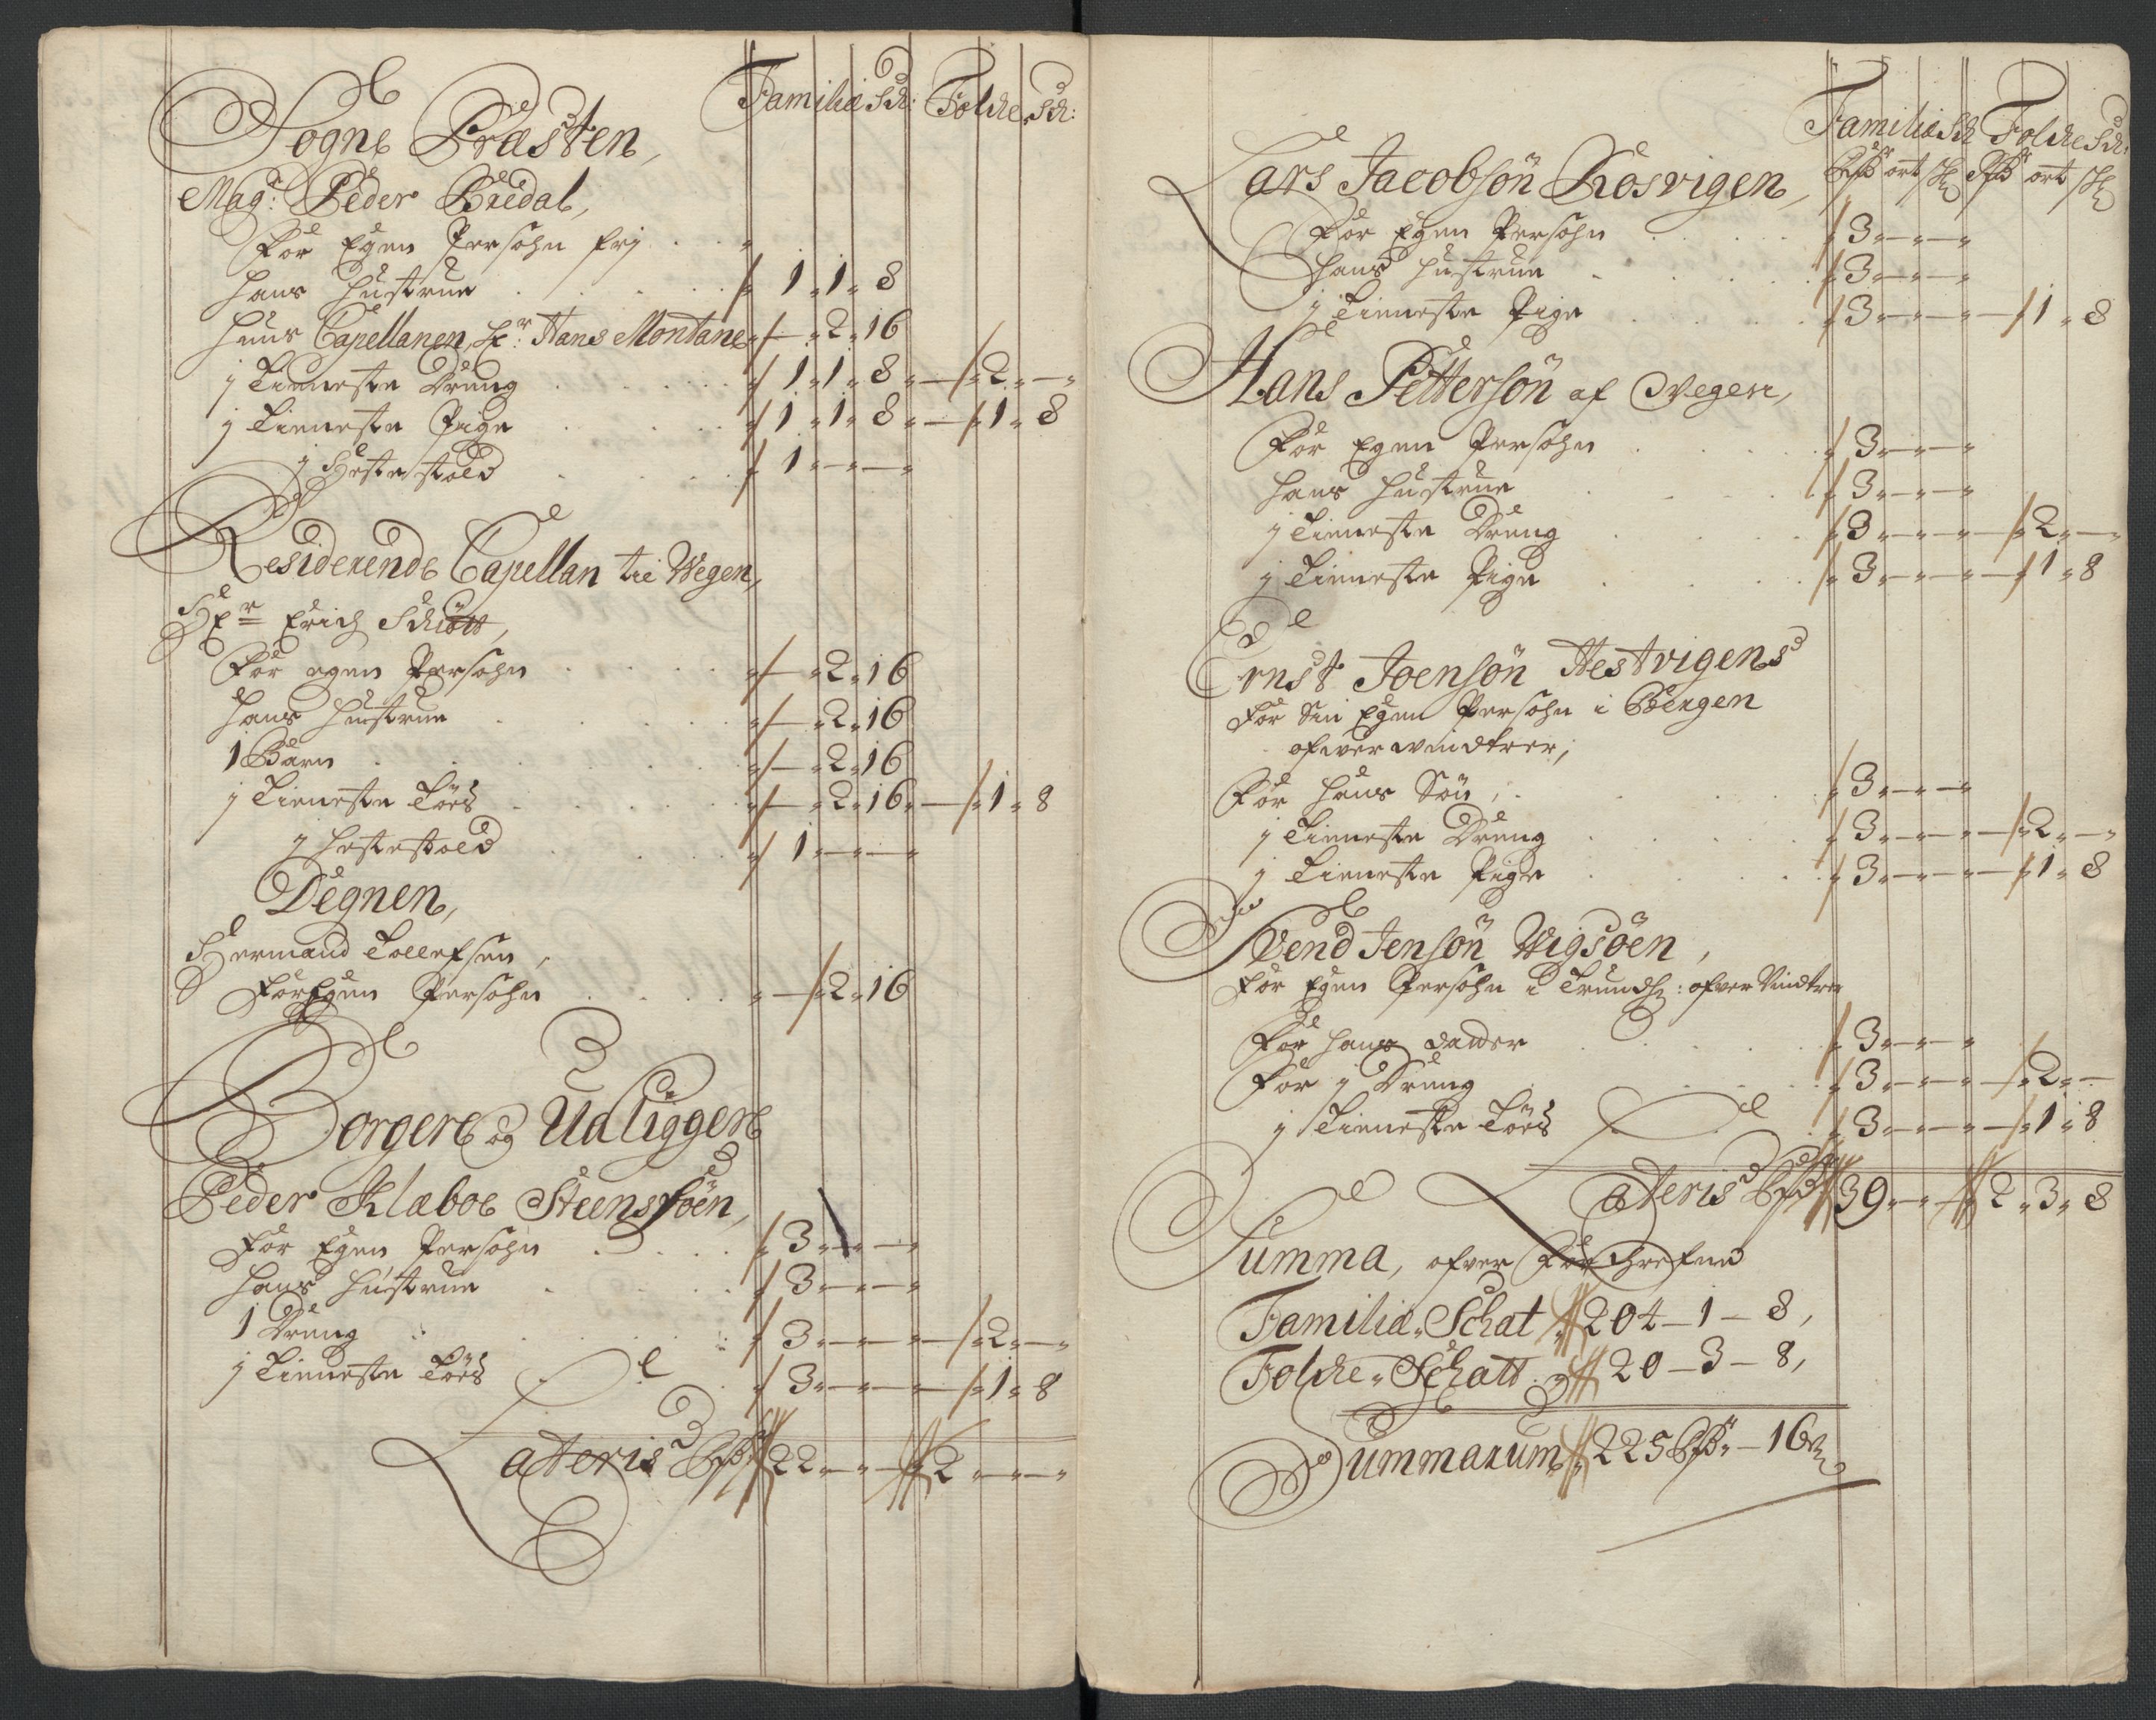 Familiæ Sch: Folche Sch:
Sogne Præsten,
Mag: Peder Bredal,
For Egen Persohn frj
hans Hustrue 1 " 1 " 8
hans Capellanen, Hr: Hans Montane — " 2 " 16
j Tieneste Dreng 1 " 1 " 8 " — " 2 " — "
j Tieneste Pige 1 " 1 " 8 " — " 1 " 8
j Hestestold 1 " — " — "
Residerende Capellan til Wegen,
Hr Erich Schött,
For egen Persohn — " 2 " 16
hans Hustrue — " 2 " 16
1 Barn — " 2 " 16
j Tieneste Tøes — " 2 " 16 " — " 1 " 8
j hestestold 1 " — " — "
Degnen,
Hermand Tollefsen,
For Egen Persohn — " 2 " 16
Borgere og Udligger
Peder Klæboe Steensöen,
For Egen Persohn 3 " — " — "
hans Hustrue 3 " — " — "
1 Dreng 3 " — " — " — " 2 " — "
j Tieneste Tøes 3 " — " — " — " 1 " 8
Lateris Rdr 22 " — " — " 2 " — " — "
Familiæ Sch Folche Sch:
Rdr ort sh Rdr ort sh
Lars Jacobsön Rosvigen,
For Egen Persohn 3 " — " — "
Hans Hustrue 3 " — " — "
j Tieneste Pige 3 " — " — " — " 1 " 8
Hans Pettersön af Wegen,
For Egen Persohn 3 " — " — "
hans Hustrue 3 " — " — "
j Tieneste Dreng 3 " — " — " — " 2 " — "
j Tieneste Pige 3 " — " — " — " 1 " 8
Ernst Joensön Hestvigens
For Sin Egen Persohn i Bergen
ofwerwindtrer,
For hans Sön, 3 " — " — "
j Tieneste Dreng 3 " — " — " — " 2 " — "
j Tieneste Pige 3 " — " — " — " 1 " 8
Svend Jensön Wigsöen,
For Egen Persohn i Trundh: ofver Vindtrer
For hans datter 3 " — " — "
For j Dreng 3 " — " — " — " 2 " —
j Tieneste Tøes 3 " — " — " — " 1 " 8
Lateris Rdr 39 " — " — " 2 " 3 " 8
Summa, ofver Foreskrefne
Familiæ Schat 204 – 1 – 8,
Folche Schatt 20 – 3 – 8,
Summarum 225 Rdr " – 16 sh